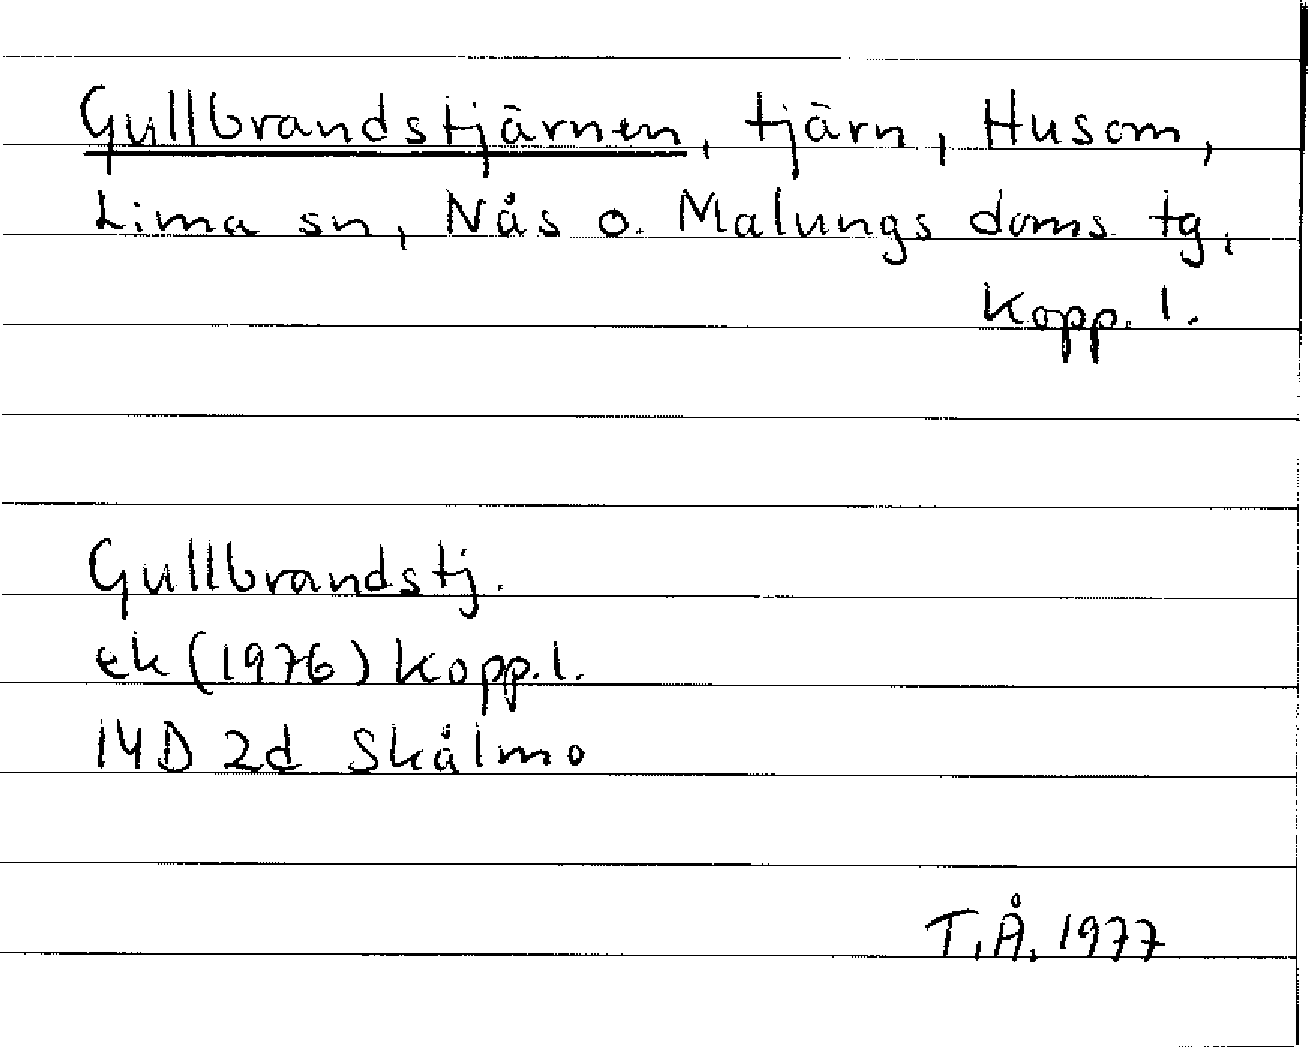 Gullbrandstjärnen, tjärn, Husom,
Lima sn, Nås o. Malungs doms. tg,
Kopp. l.
Gullbrandstj.
ek (1976) Kopp. l.
14D 2d Skålmo
T.Å. 1977